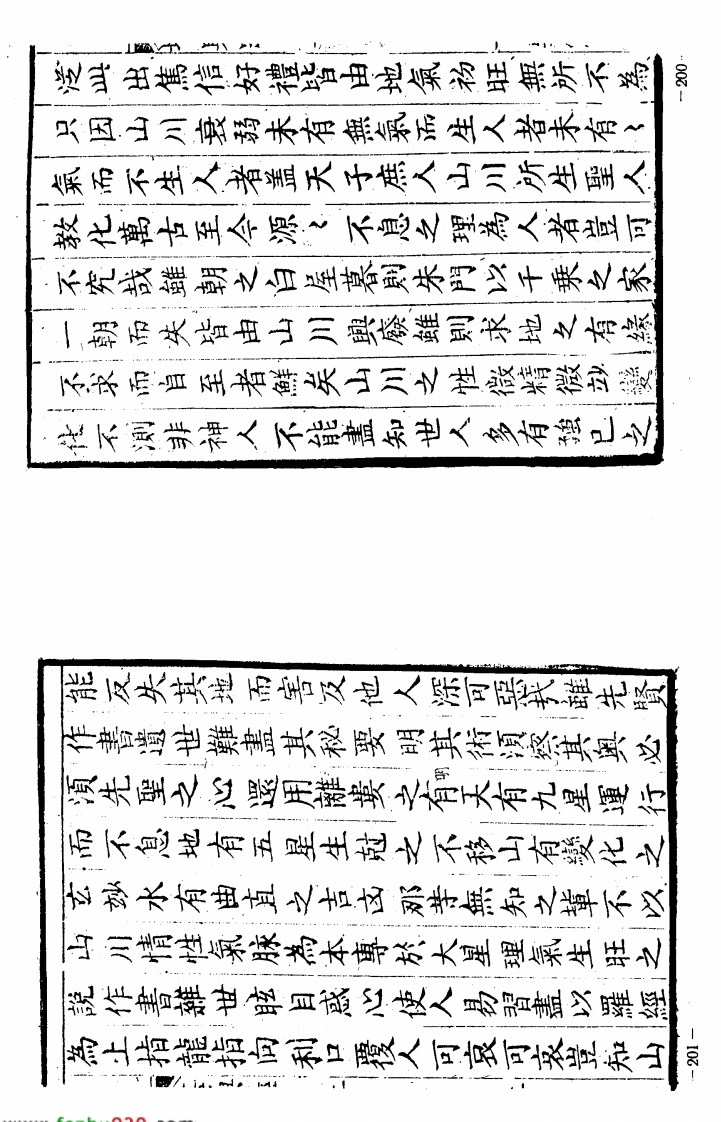 泛此出篤信好禮皆由地氣初旺無所不為
只因山川衰弱未有無氣而生人者未有〻
氣而不生人者盖天子庶人山川所生聖人
教化萬古至今源〻不息之理為人者豈可
不究哉雖朝之白屋暮則朱門以千乗之家
一朝而失皆由山川興廢雖則求地之有緣
不求而自至者鮮矣山川之性微精微玅變
化不測非神人不能盡知世人多有強已之
—200—
能反失其地而害及他人深可惡哉雖先賢
作書遺世難盡其秘要明其術須察其奥必
須先聖之心還用離婁之有明天有九星運行
而不息地有五星生尅之不移山有變化之
玄玅水有曲直之吉凶那等無知之輩不以
山川情性氣脉為本專於大星理氣生旺之
說作書雜世眩目惑心使人易習盡以羅經
為上指龍指向利口覆人可哀可哀豈知山
—201—